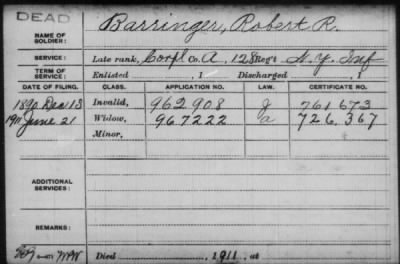 DEAD
NAME OF SOLDIER: Barringer, Robert R.
SERVICE: Late rank, Corpl Co. A, 128 Reg't N.Y. Inf
TERM OF SERVICE: Enlisted , 1 Discharged , 1
DATE OF FILING. CLASS. APPLICATION NO. LAW. CERTIFICATE NO.
1890 Dec 13 Invalid, 962908 J 761673
1911 June 21 Widow, 967222 a 726,367
Minor,
ADDITIONAL SERVICES:
REMARKS:
Died , 1911, at